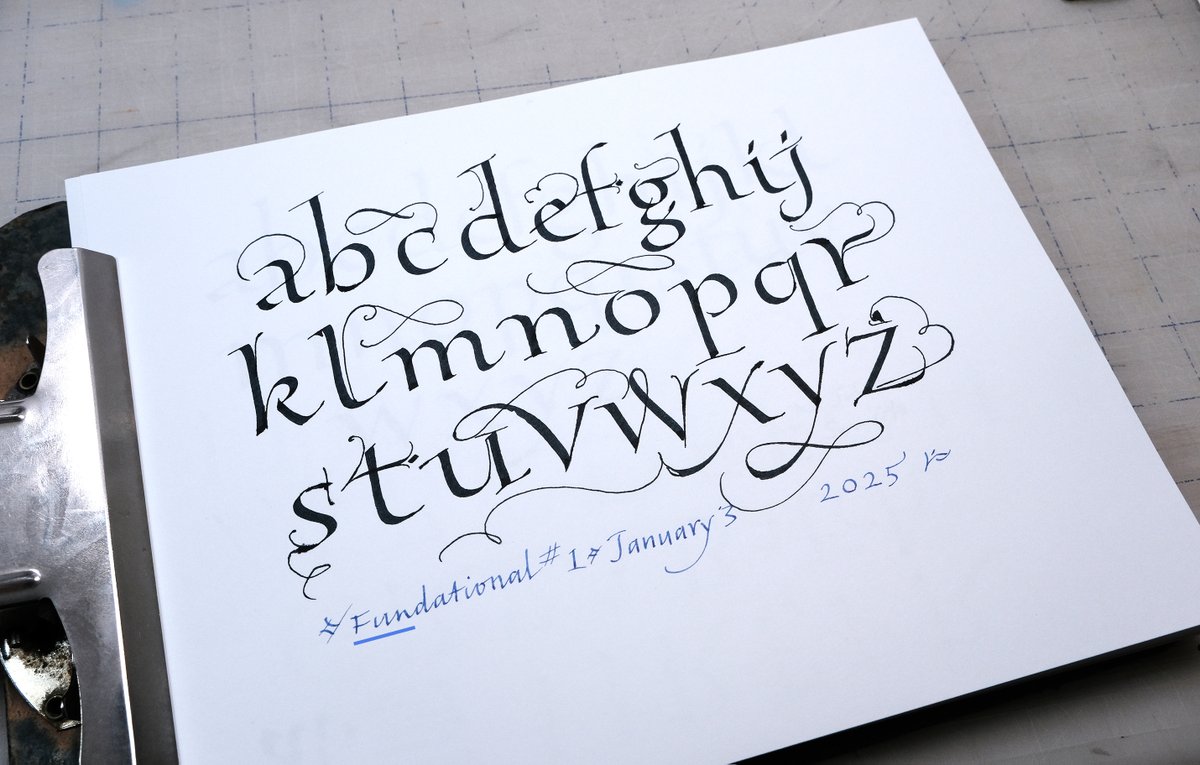 abcdefghij
klmnopqr
stuvwxyz
Fundational #1 January 3 2025